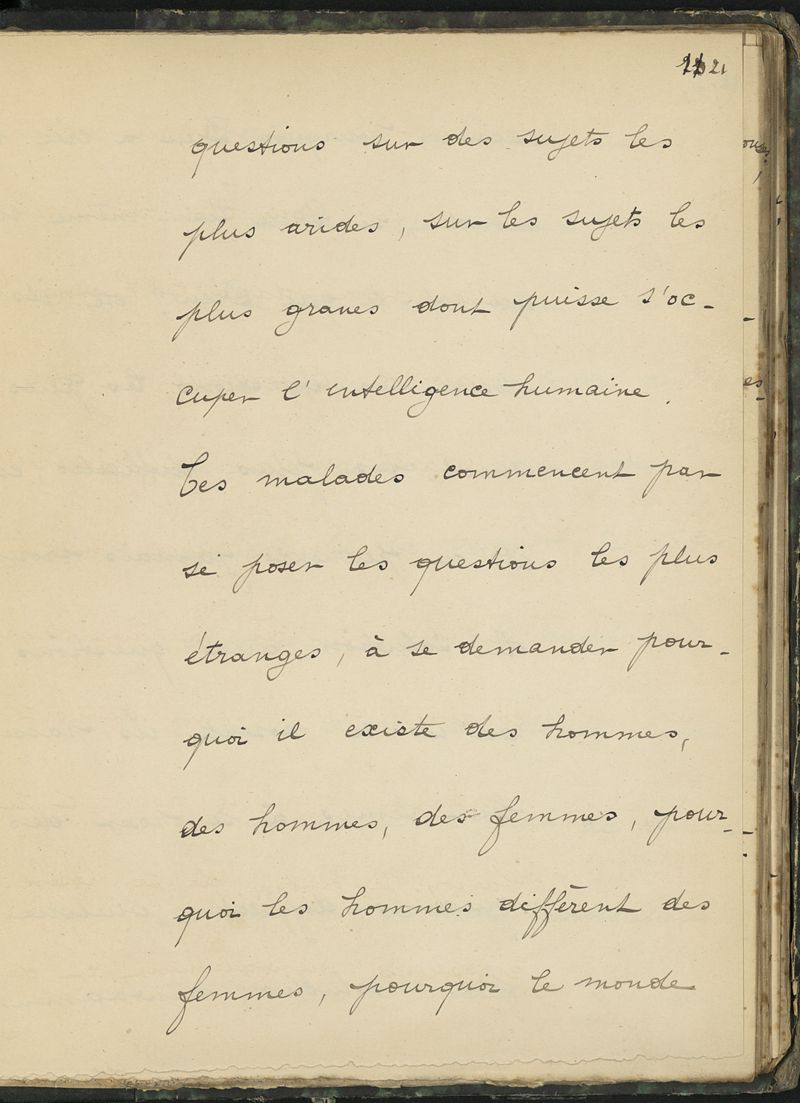 21
questions sur des sujets les
plus arides, sur les sujets les
plus graves dont puisse s'oc-
cuper l'intelligence humaine.
Ces malades commencent par
se poser les questions les plus
étranges, à se demander pour-
quoi il existe des hommes,
des hommes, des femmes, pour-
quoi les hommes diffèrent des
femmes, pourquoi le monde